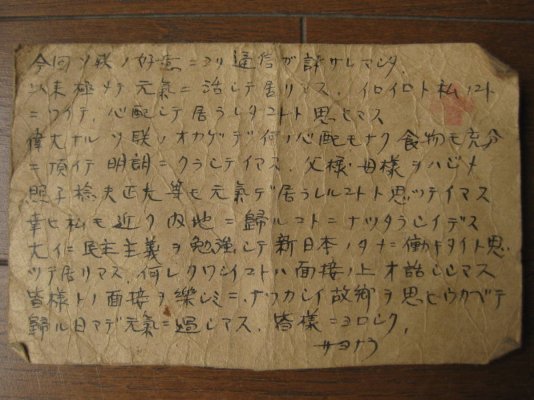 今回ソ联ノ好意ニヨリ通信が許サレマシタ.
以来極メテ元氣ニ活シテ居リマス. イロイロト私ノコト
ニツイテ. 心配シテ居ラレタコトト思ヒマス
偉大ナルソ联ノオカゲデ何ノ心配モナク食物モ充分
ニ頂イテ明朗ニクラシテイマス. 父様・母様ヲハジメ
照子 捻夫 正大等モ元氣デ居ラレルコトト思ッテイマス
幸ヒ私モ近ク内地ニ歸ルコトニナッタラシイデス
大イニ民主主義ヲ勉強シテ新日本ノタメニ働キタイト思
ッテ居リマス. 何レクワシイコトハ面接ノ上オ話シシマス
皆様トノ面接ヲ樂シミニ. ナツカシイ故郷ヲ思ヒウカベテ
歸ル日マデ元氣ニ過シマス. 皆様ニヨロシク.
サヨナラ